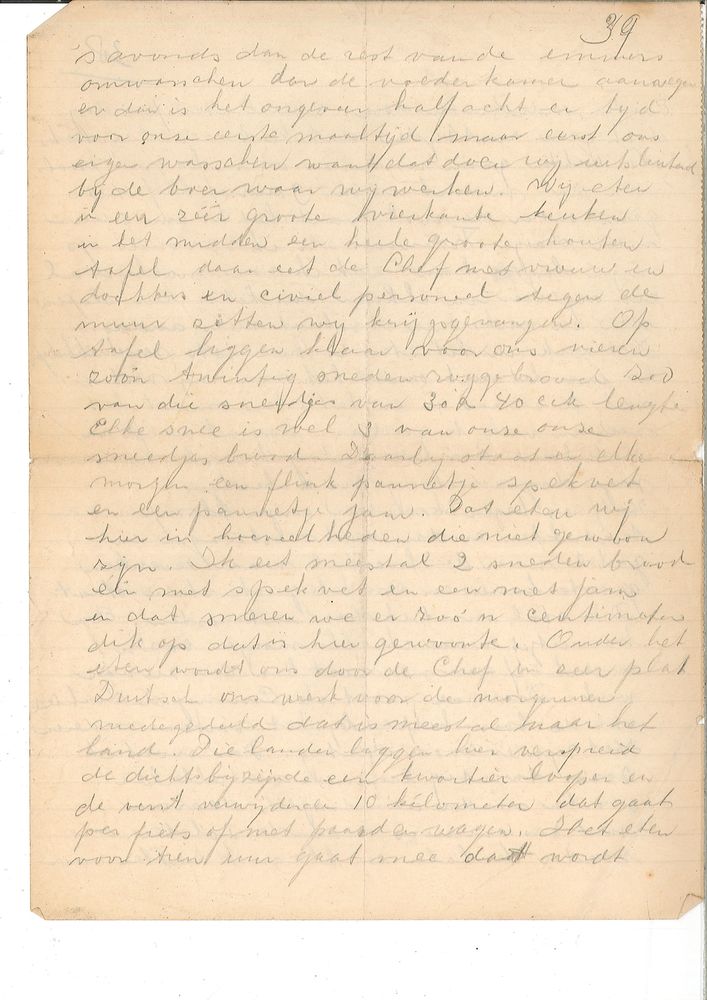 39
's avonds dan de rest van de emmers
omwasschen dan de voederkamer aanvegen
en dan is het ongeveer half acht en tyd
voor onse eerste maaltijd maar eerst ons
eigen wasschen want dat doen wij uitsluitend
by de boer waar wij werken. Wij eten
in een zéér groote vierkante keuken
in het midden een heele groote houten
tafel daar eet de Chef met vrouw en
dochters en civiel personeel tegen de
muur zitten wij krijgsgevangen. Op
tafel liggen klaar voor ons vieren
zoo'n twintig sneden roggebrood zoo
van die sneedjes van 30 à 40 cM lengte
Elke snee is wel 3 van onse onse
sneedjes brood. Daarby staat er elke
morgen een flink pannetje spekvet
en een pannetje jam. Dat eten wij
hier in hoeveelheden die niet gewoon
zyn. Ik eet meestal 2 sneden brood
één met spekvet en een met jam
en dat smeren we er zoo'n centimeter
dik op dat is hier gewoonte. Onder het
eten wordt ons door de Chef in zeer plat
Duitsch ons werk voor de morgenuren
medegedeeld dat is meestal naar het
land. Die landen liggen hier verspreid
de dichtsbyzijnde een kwartier loopen en
de verst verwyderde 10 kilometer dat gaat
per fiets of met paard en wagen. Het eten
voor tien uur gaat mee dat wordt